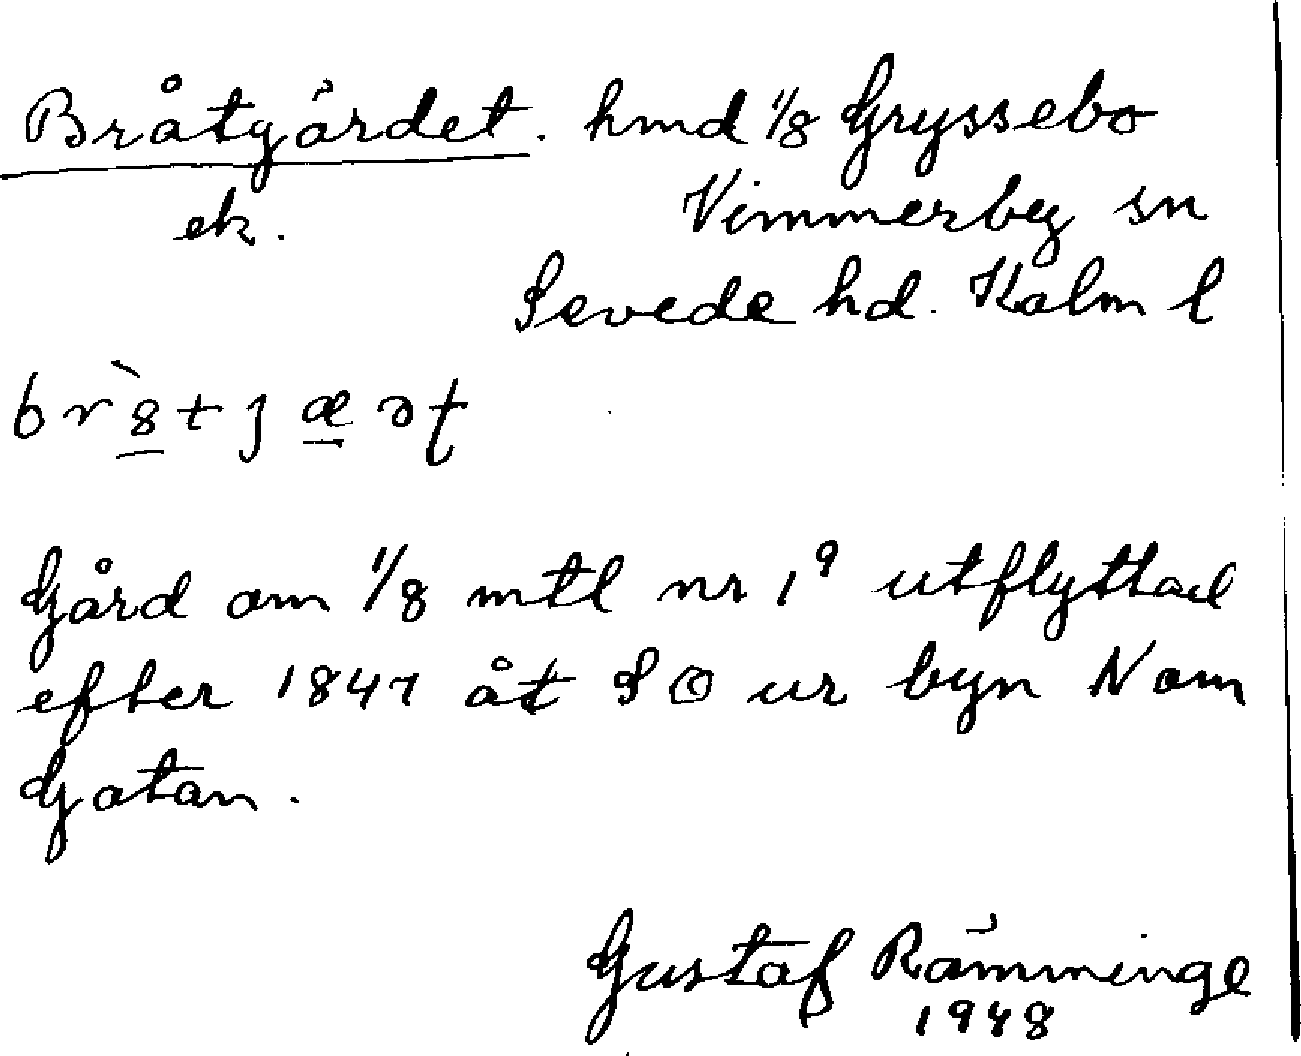 Bråtgärdet. hmd 1/8 Gryssebo
ek. Vimmerby sn
Sevede hd. Kalm l
br̀8tjæət
Gård om 1/8 mtl nr 1⁹ utflyttad
efter 1847 åt SO ur byn N om
Gatan.
Gustaf Rämminge
1948